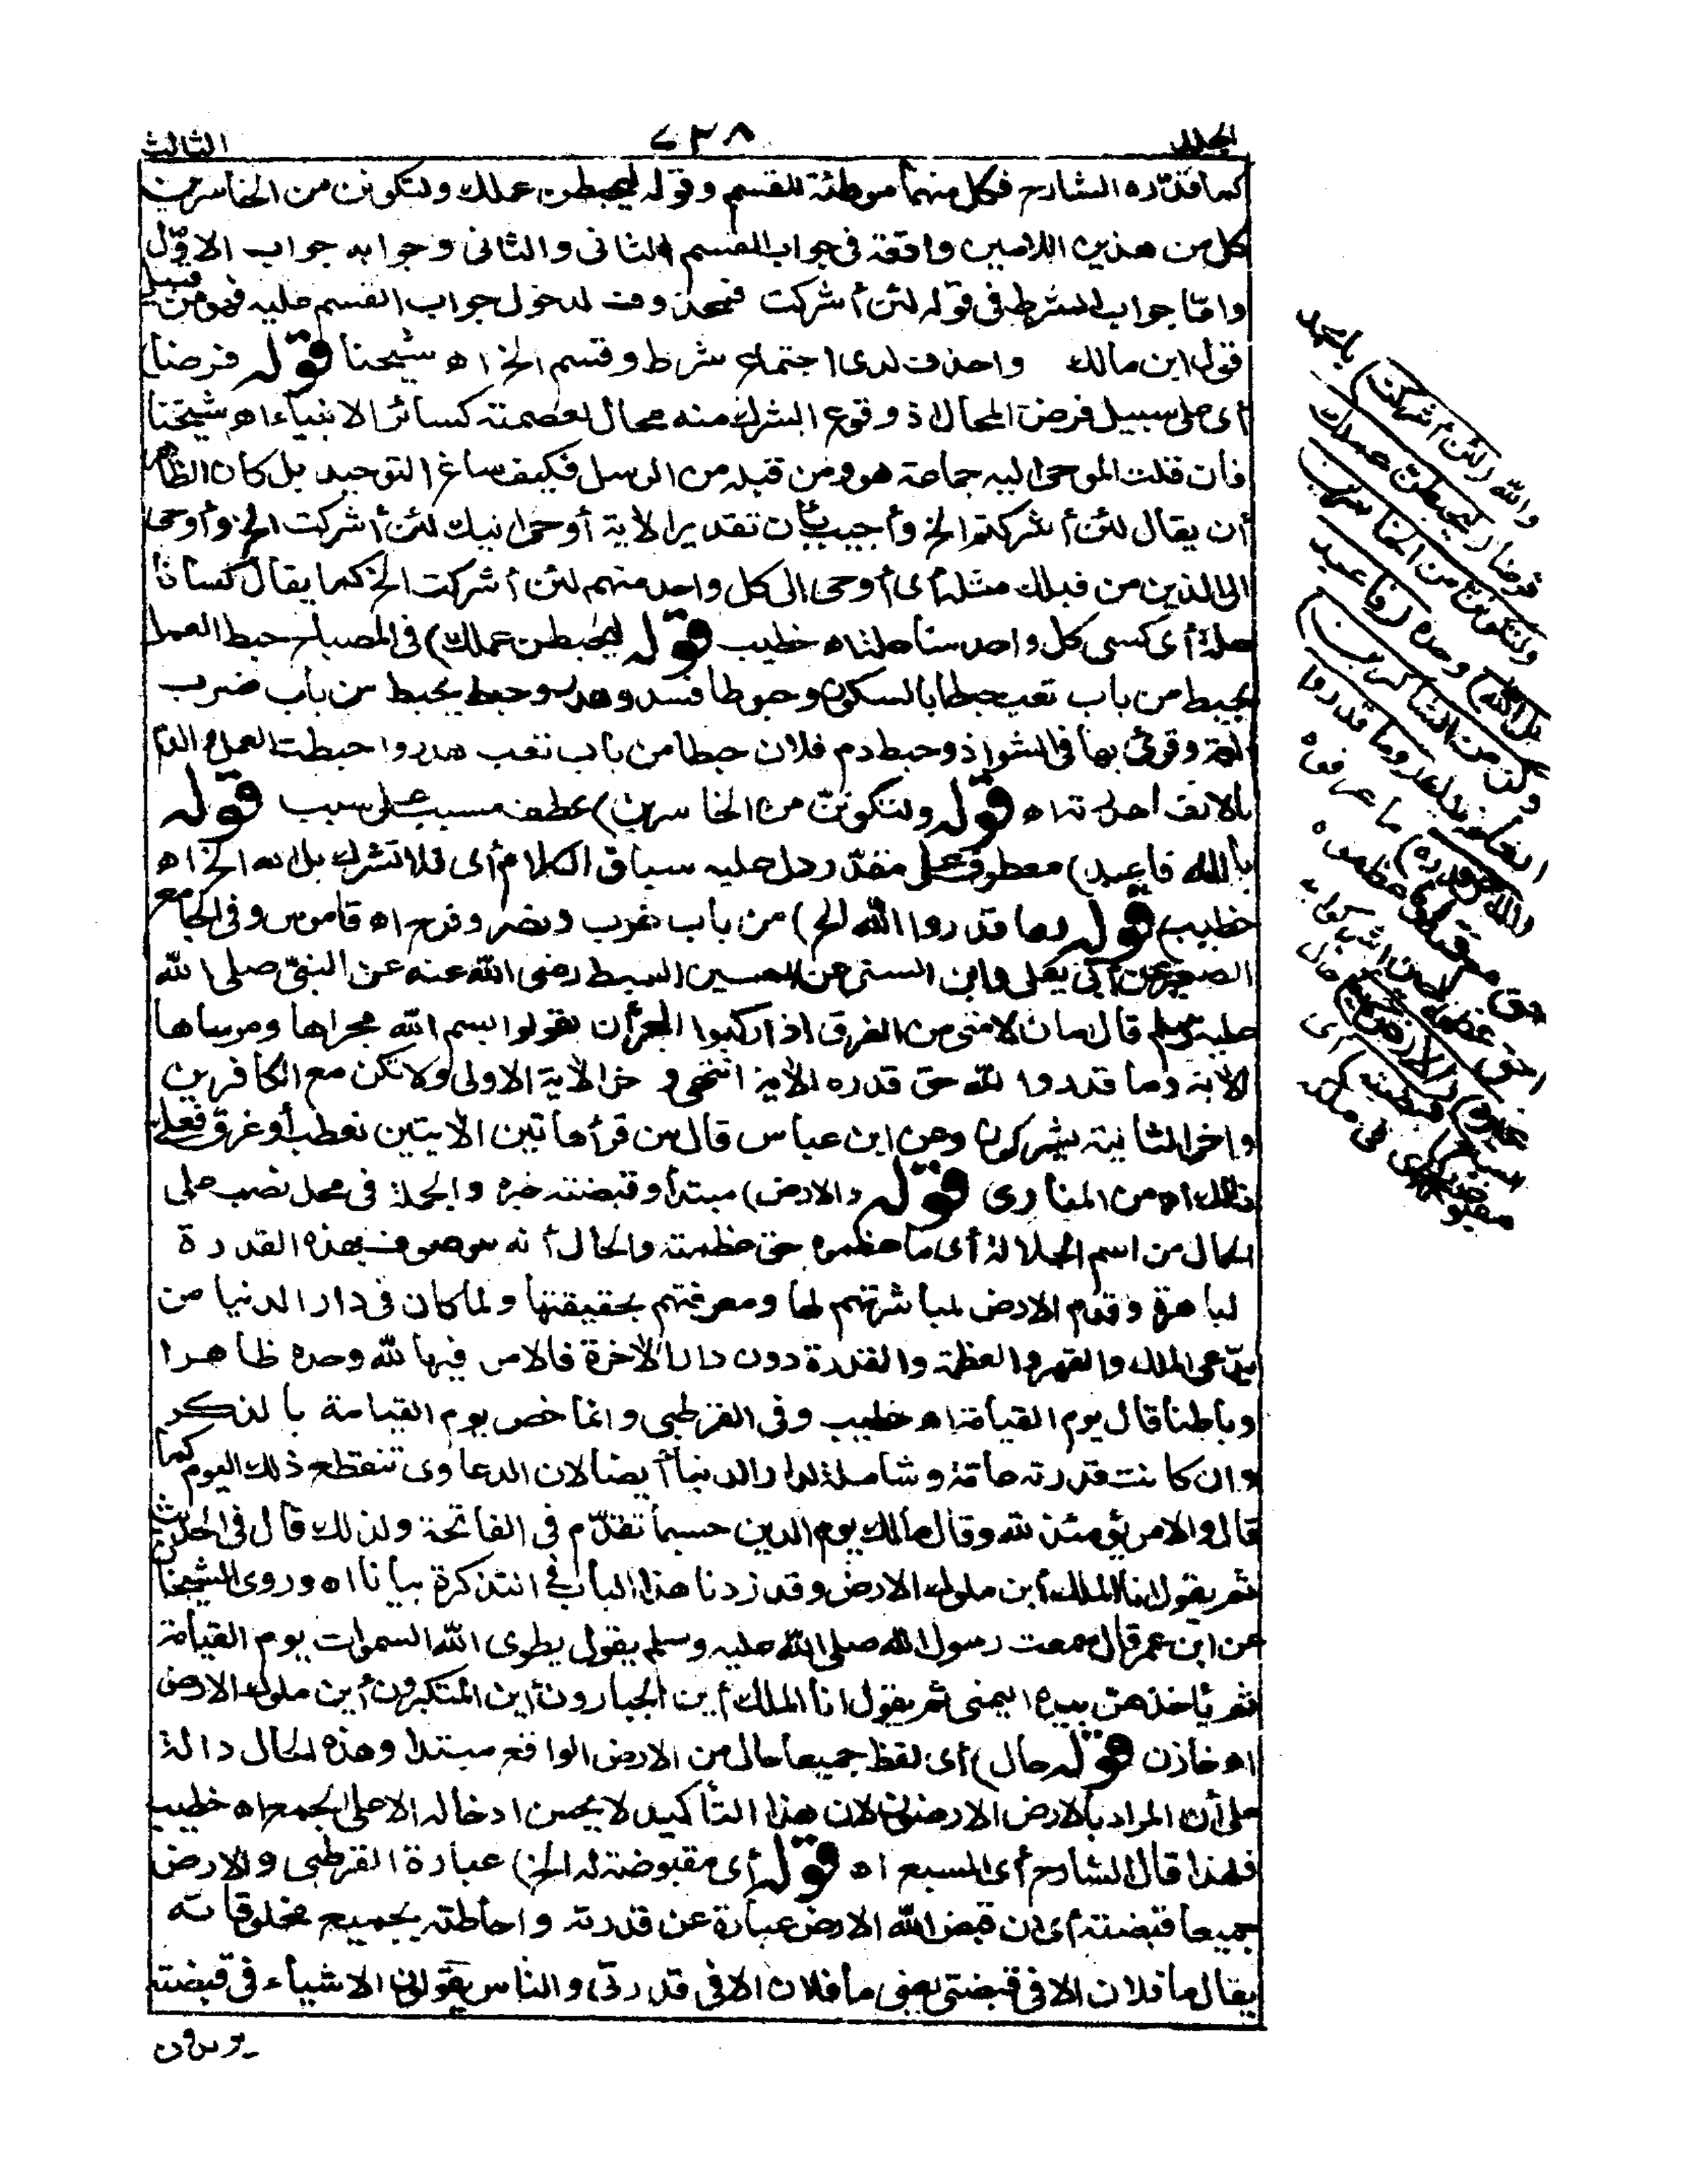 المجلد ٧٣٨ الثالث
كما قدّره الشارح فكل منهما موطئة للقسم وقوله ليحبطن عملك ولتكونن من الخاسرين
كل من هذين اللامين واقعة في جواب القسم الثاني والثاني وجوابه جواب الاوّل
وامّا جواب الشرط في قوله لئن أشركت فمحذوف لدخول جواب القسم عليه فهو من قبيل
قول ابن مالك واحذف لدى اجتماع شرط وقسم الخ اه شيخنا قوله فرضا)
أى على سبيل فرض المحال اذ وقوع الشرك منه محال لعصمته كسائر الانبياء اه شيخنا
فان قلت الموحى اليه جماعة هو ومن قبله من الرسل فكيف ساغ التوحيد بل كان الظاهر
أن يقال لئن أشركتم الخ وأجيب بأن تقدير الآية أوحى اليك لئن أشركت الخ وأوحى
الى الذين من قبلك مثله أى أوحى الى كل واحد منهم لئن أشركت الخ كما يقال كسانا
حلة أى كسى كل واحد منا حلة اه خطيب قوله ليحبطن عملك) في المصباح حبط العمل
يحبط من باب تعب حبطا بالسكون وحبوطا فسد وهدر وحبط يحبط من باب ضرب
لغة وقرئ بها في الشواذ وحبط دم فلان حبطا من باب تعب هدر واحبطت العمل والدم
بالالف اهدرته اه قوله ولتكوننّ من الخاسرين) عطف مسبب على سبب قوله
بل الله فاعبد) معطوف على مقدّر دل عليه سياق الكلام أى فلا تشرك بل الله الخ اه
خطيب قوله وما قدروا الله الخ) من باب ضرب ونصر وفرح اه قاموس وفي الجامع
الصغير عن أبي يعلى وابن السني عن الحسين السبط رضى الله عنه عن النبيّ صلى الله
عليه وسلم قال امان لامتي من الغرق اذا ركبوا البحر أن يقولوا بسم الله مجراها ومرساها
الآية وما قدروا الله حق قدره الآية انتهى وآخر الآية الاولى ولا تكن مع الكافرين
وآخر الثانية يشركون وعن ابن عباس قال من قرأ هاتين الآيتين فعطب أو غرق فعليّ
ذلك اه من المناوى قوله والارض) مبتدأ وقبضته خبره والجملة في محل نصب على
الحال من اسم الجلالة أى ما عظموه حق عظمته والحال أنه موصوف بهذه القدرة
الباهرة وقدم الارض لمباشرتهم لها ومعرفتهم بحقيقتها ولما كان في دار الدنيا من
يدّعى الملك والقهر والعظمة والقدرة دون دار الآخرة فالامر فيها لله وحده ظاهرا
وباطنا قال يوم القيامة اه خطيب وفي القرطبي وانما خص يوم القيامة بالذكر
وان كانت قدرته عامّة وشاملة لدار الدنيا أيضا لان الدعاوى تنقطع ذلك اليوم كما
قال والامر يومئذ لله وقال مالك يوم الدين حسبما تقدّم في الفاتحة ولذلك قال في الحديث
ثم يقول انا الملك أين ملوك الارض وقد زدنا هذا الباب في التذكرة بيانا اه وروى الشيخان
عن ابن عمر قال سمعت رسول الله صلى الله عليه وسلم يقول يطوى الله السموات يوم القيامة
ثم يأخذهنّ بيده اليمنى ثم يقول انا الملك أين الجبارون أين المتكبرون أين ملوك الارض
اه خازن قوله حال) أى لفظ جميعا حال من الارض الواقع مبتدا وهذه الحال دالة
على أن المراد بالارض الارضون لان هذا التأكيد لا يحسن ادخاله الا على الجمع اه خطيب
فلهذا قال الشارح أى السبع اه قوله أى مقبوضة له الخ) عبارة القرطبي والارض
جميعا قبضته أى ان قبض الله الارض عبارة عن قدرته واحاطته بجميع مخلوقاته
يقال ما فلان الا في قبضتى يعنى ما فلان الا في قدرتى والناس يقولون الاشياء في قبضته
يريدون
والله (لئن أشركت) يا محمد
فرضا (ليحبطن عملك
ولتكونن من الخاسرين
بل الله) وحده (فاعبد
وكن من الشاكرين)
انعامه عليك وما قدروا
الله حق قدره) ما عرفوه
حق معرفته أى ما عظموه
حق عظمته حين أشركوا به
غيره (والارض جميعا) حال
أى السبع (قبضته) أى
مقبوضة له أى في ملكه